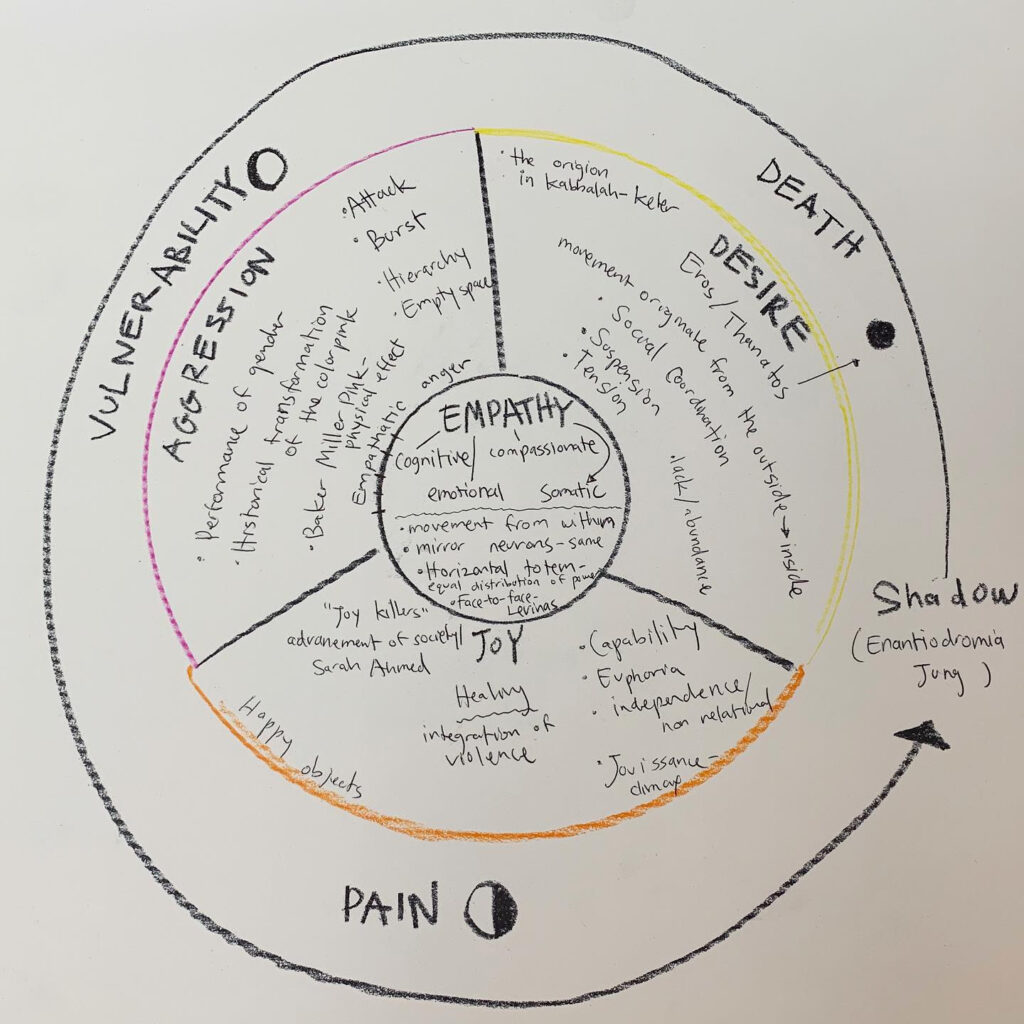 VULNERABILITY
AGGRESSION
• Attack
• Burst
• Hierarchy
• Empty space
• Performance of gender
• Historical transformation
of the color pink
• Baker Miller Pink-
physical effect
Empathatic anger
DEATH
DESIRE
• the origion
in kabbalah-keter
Eros/Thanatos
movement originate from the outside→inside
• Social Coordination
• Suspension
• Tension
• lack/abundance
EMPATHY
Cognitive/ compassionate
emotional Somatic
• movement from within
• mirror neurons-same
• Horizontal totem-
equal distribution of power
• face-to-face-
Levinas
JOY
"Joy killers"
advanement of society/
Sarah Ahmed
Happy objects
Healing
integration of
violence
• Capability
• Euphoria
• independence/
non relational
• Jouissance-
climax
Shadow
(Enantiodromia
Jung)
PAIN